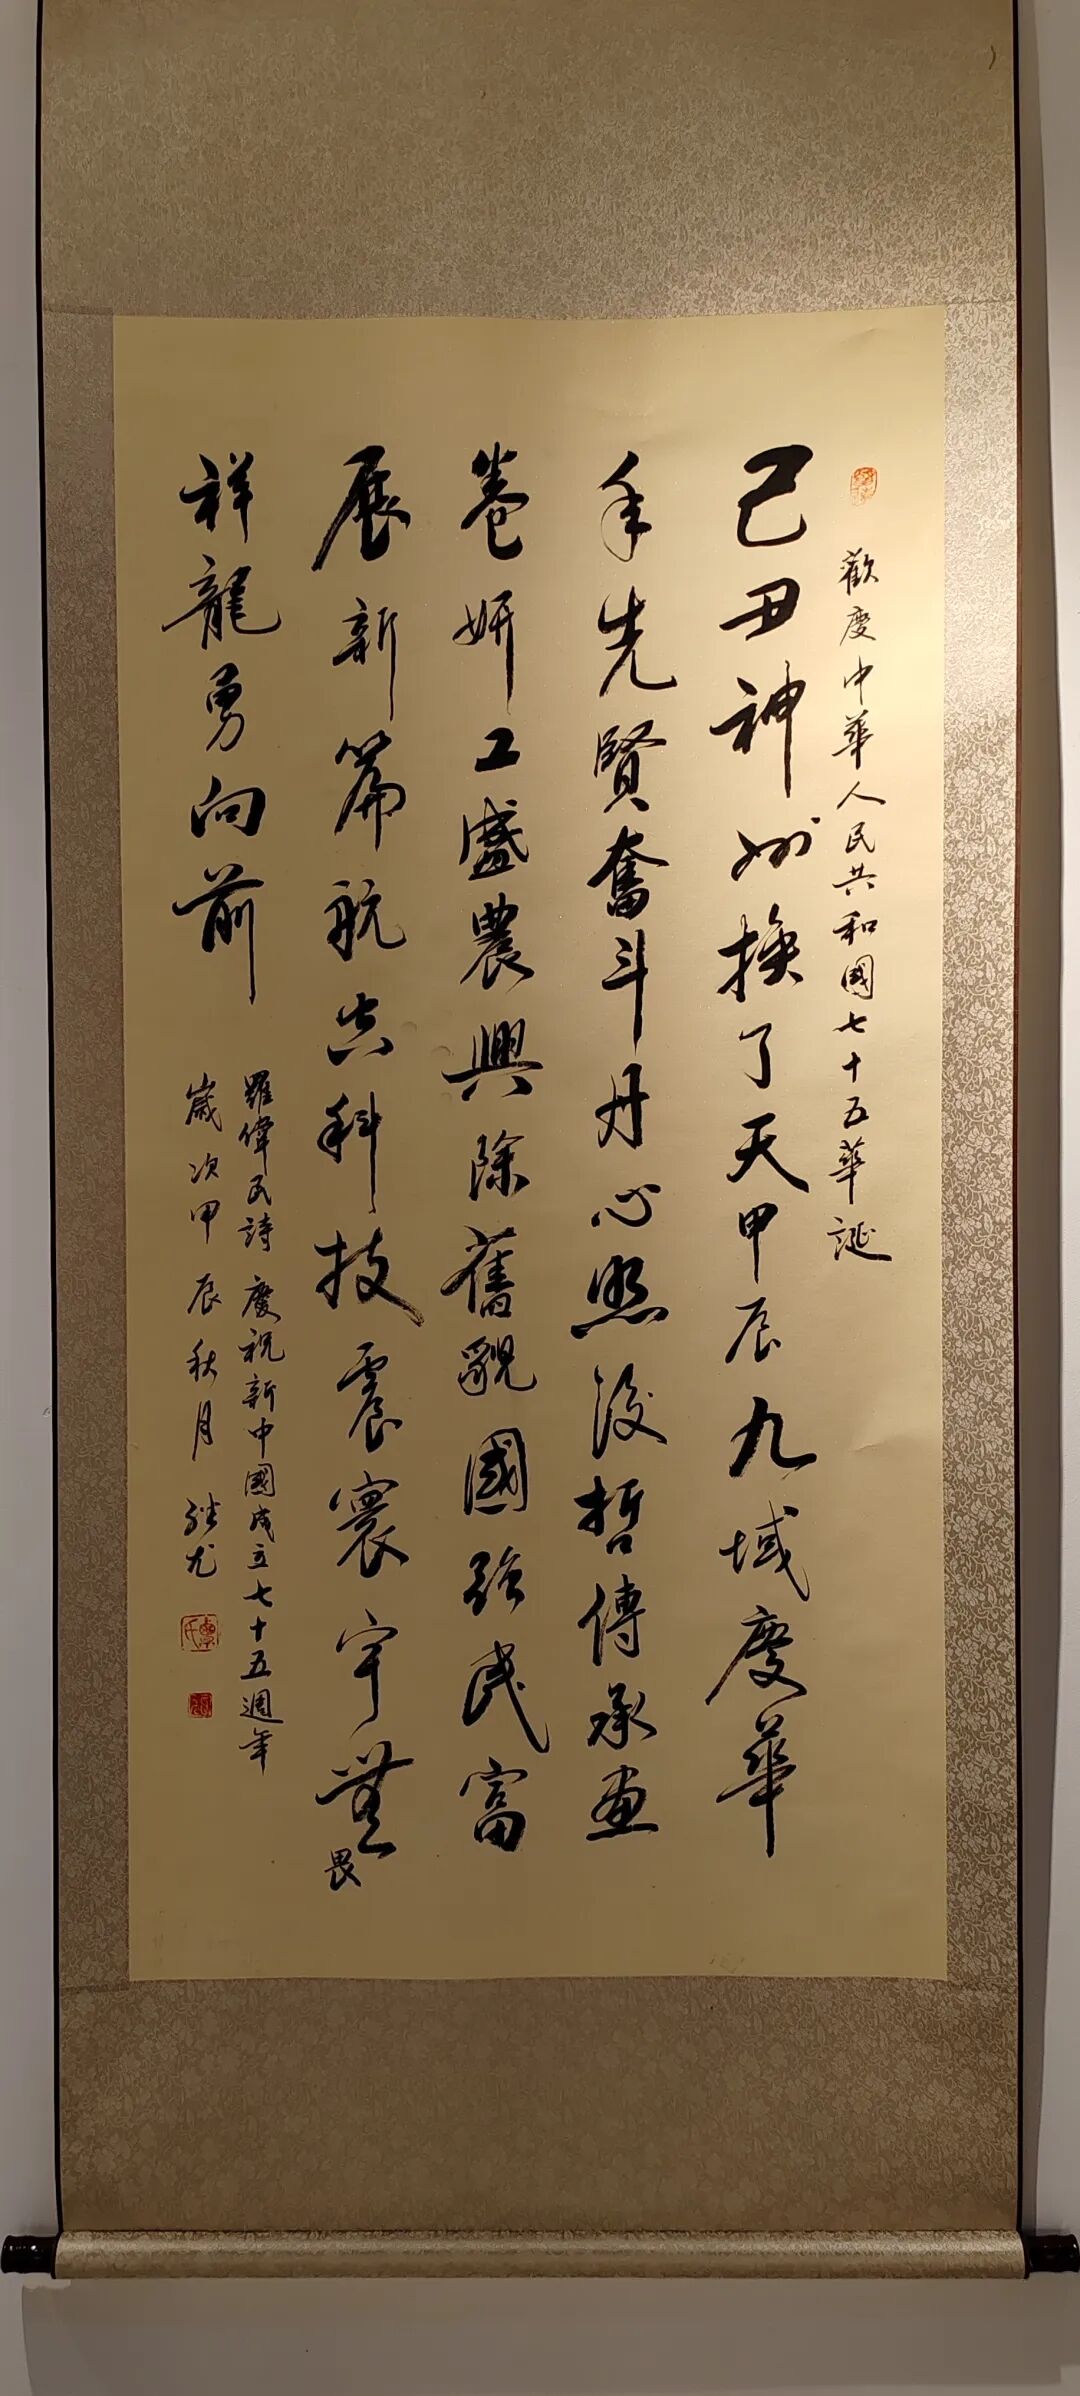 歡慶中華人民共和國七十五華誕
己丑神州換了天甲辰九域慶華
年先賢奮斗丹心照後哲傳承畫
卷妍工盛農興除舊貌國強民富
展新篇航空科技震寰宇無畏
祥龍勇向前
羅偉民詩慶祝新中國成立七十五週年
歲次甲辰秋月